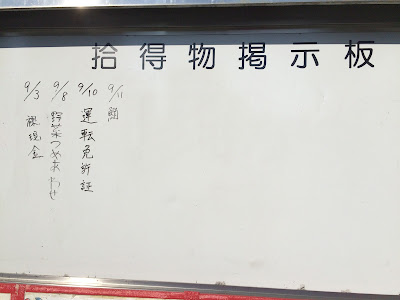 拾得物掲示板
9/11 鯛
9/10 運転免許証
9/8 野菜つめあわせ
9/3 裸現金